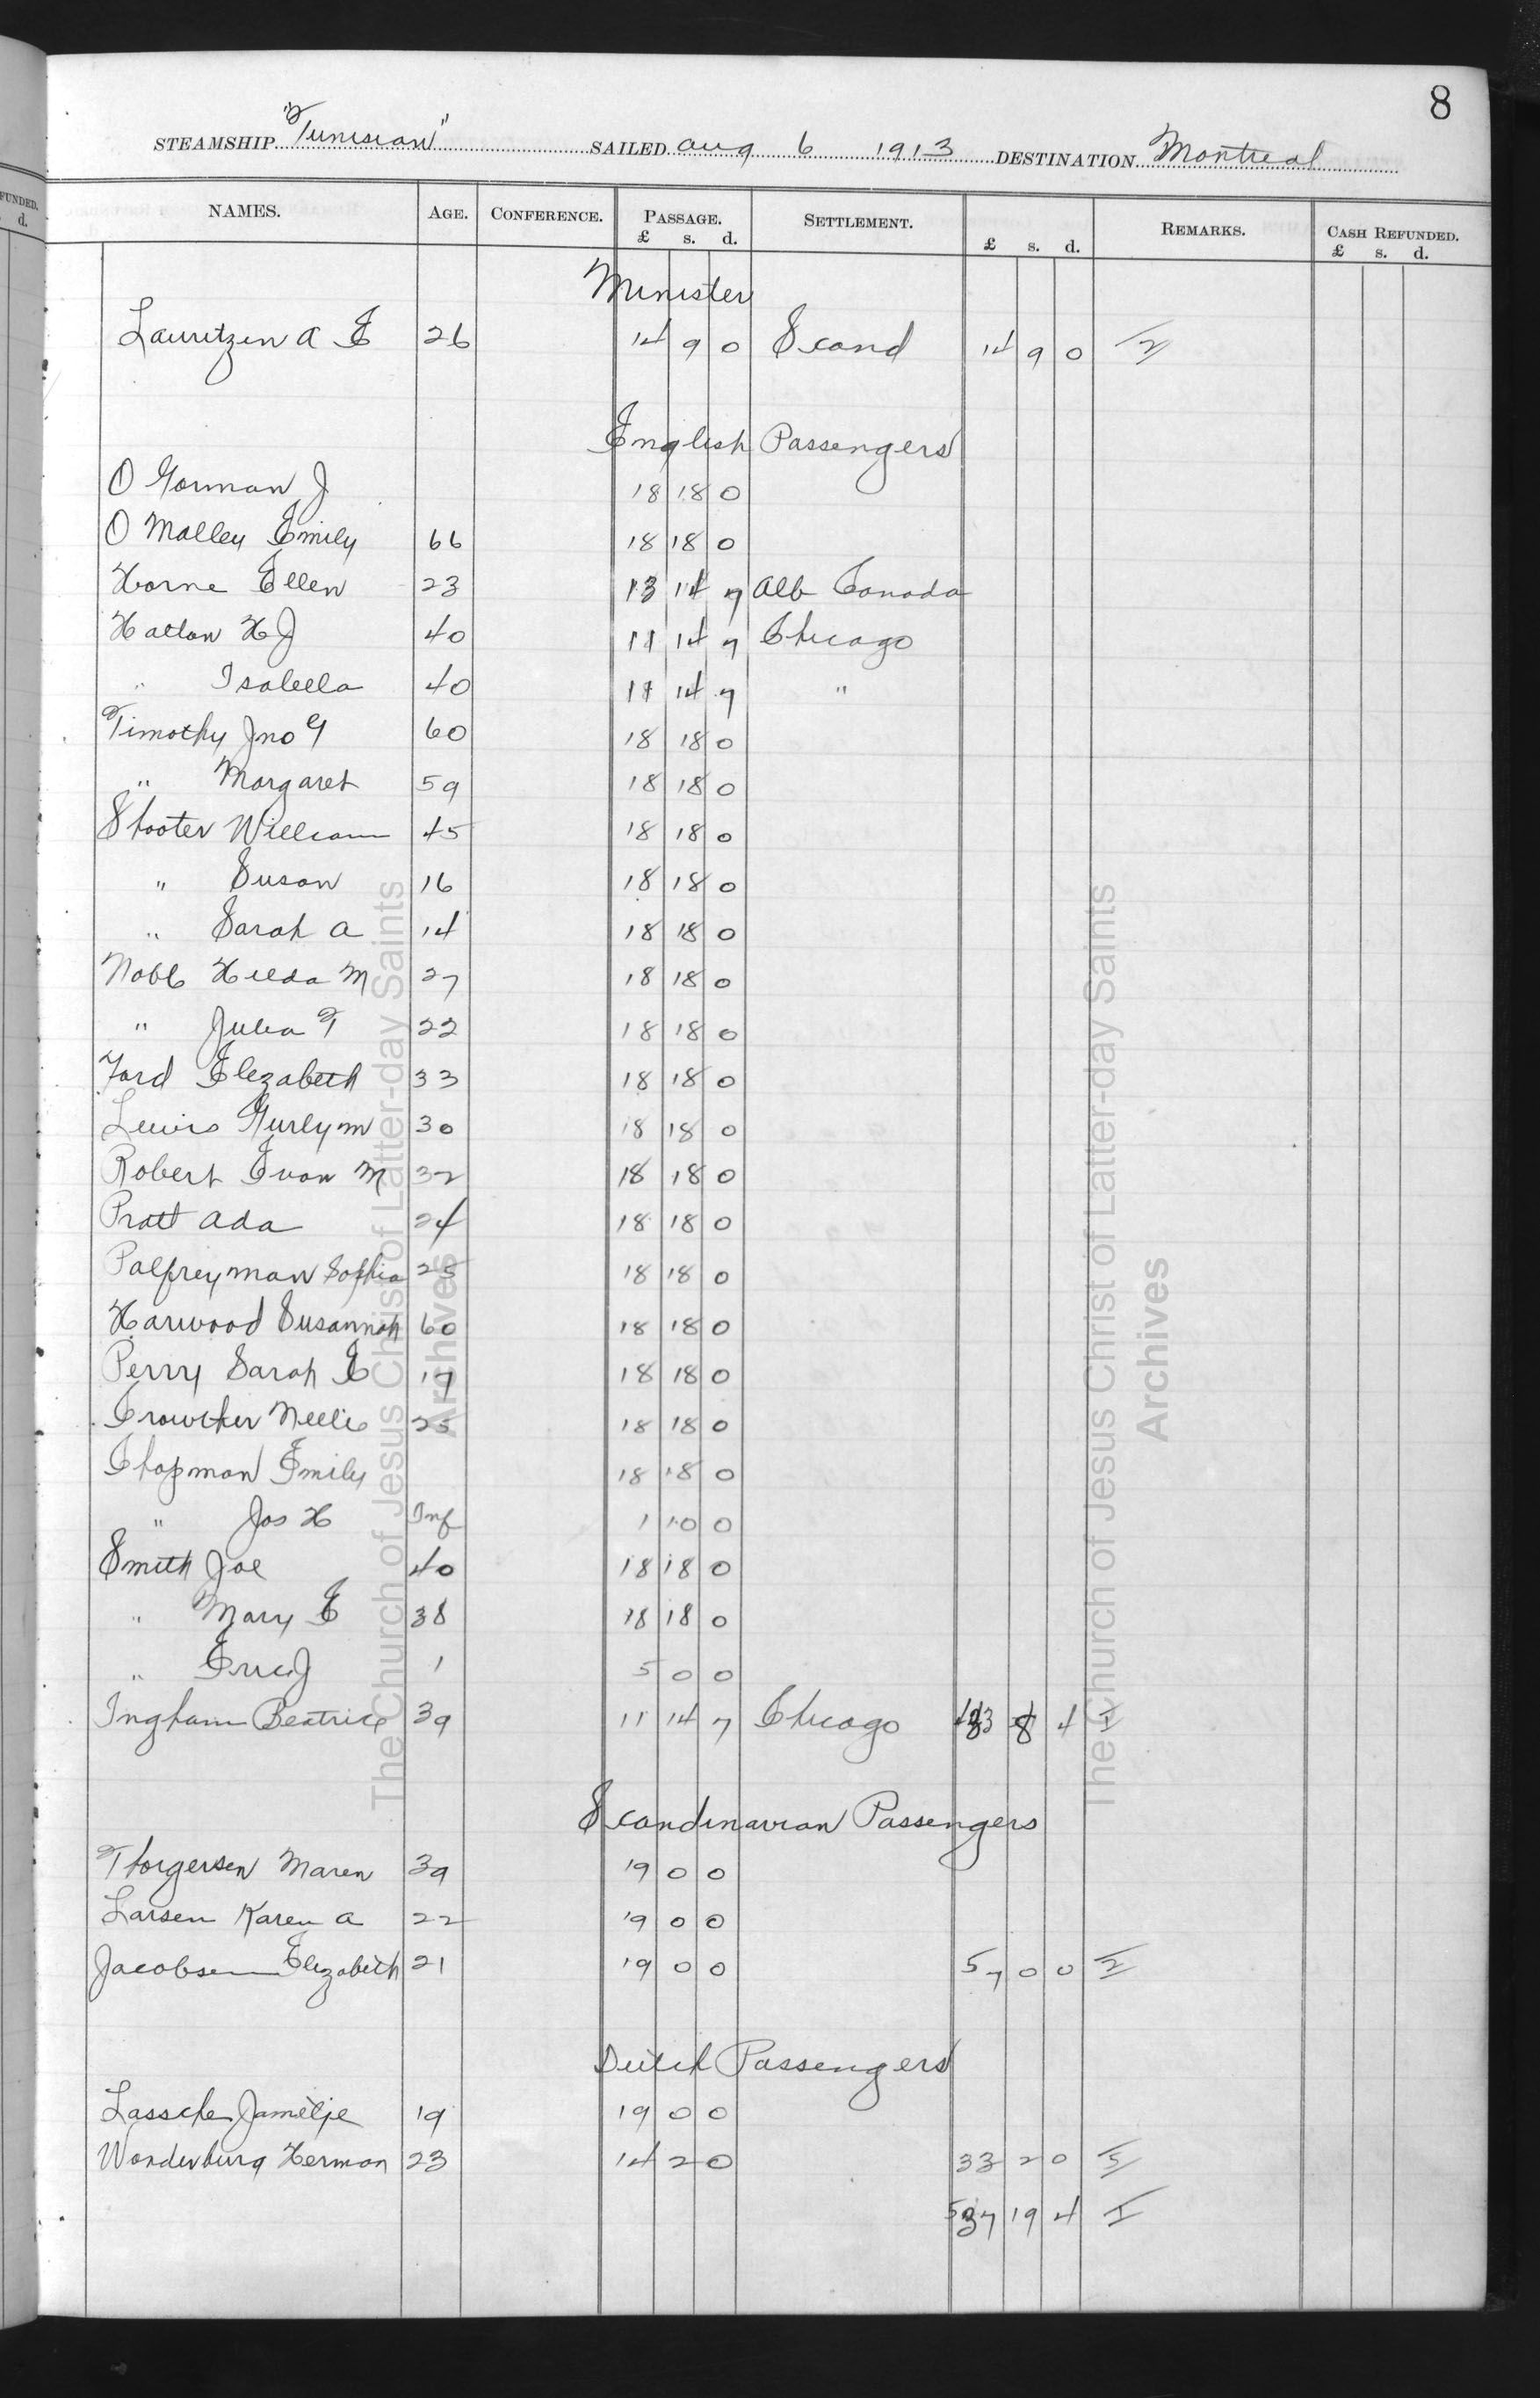 8
STEAMSHIP "Tunisian" SAILED Aug 6 1913 DESTINATION Montreal
FUNDED.
d.
NAMES. AGE. CONFERENCE. PASSAGE. £ s. d. SETTLEMENT. £ s. d. REMARKS. CASH REFUNDED. £ s. d.
Minister
Lauritzen A E 26 14 9 0 Scand 14 9 0
English Passengers
O Gorman J 18 18 0
O Malley Emily 66 18 18 0
Horne Ellen 23 13 14 7 Alb Canada
Hatton H J 40 11 14 7 Chicago
" Isabella 40 11 14 7 "
Timothy Jno G 60 18 18 0
" Margaret 59 18 18 0
Shooter William 45 18 18 0
" Susan 16 18 18 0
" Sarah A 14 18 18 0
Nobb Hilda M 27 18 18 0
" Julia T 22 18 18 0
Ford Elezabeth 33 18 18 0
Lewis Gurlym 30 18 18 0
Robert Evan M 32 18 18 0
Pratt Ada 24 18 18 0
Palfreyman Sophia 25 18 18 0
Harwood Susannah 60 18 18 0
Perry Sarah E 17 18 18 0
Crowther Nellie 25 18 18 0
Chapman Emily 18 18 0
" Jos H Inf 1 10 0
Smith Joe 40 18 18 0
" Mary E 38 18 18 0
" Eric J 1 5 0 0
Ingham Beatrice 39 11 14 7 Chicago 8 4
Scandinavian Passengers
Thorgersen Maren 39 19 0 0
Larsen Karen A 22 19 0 0
Jacobsen Elezabeth 21 19 0 0 57 0 0
Dutch Passengers
Lassche Jameltje 19 19 0 0
Wonderburg Herman 23 14 2 0 33 2 0
537 19 4
The Church of Jesus Christ of Latter-day Saints
Archives
The Church of Jesus Christ of Latter-day Saints
Archives